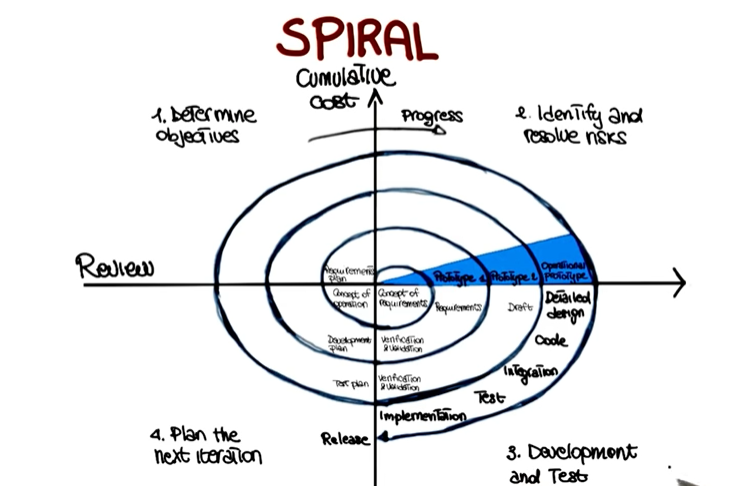 SPIRAL
Cumulative
cost
Progress
1. Determine
objectives
2. Identify and
resolve risks
Review
Requirements
plan
Prototype 1
Prototype 2
Operational
prototype
Concept of
operation
Concept of
requirements
Requirements
Draft
Detailed
design
Development
plan
Verification
& Validation
Code
Test plan
Verification
& Validation
Integration
Test
Implementation
Release
4. Plan the
next iteration
3. Development
and Test